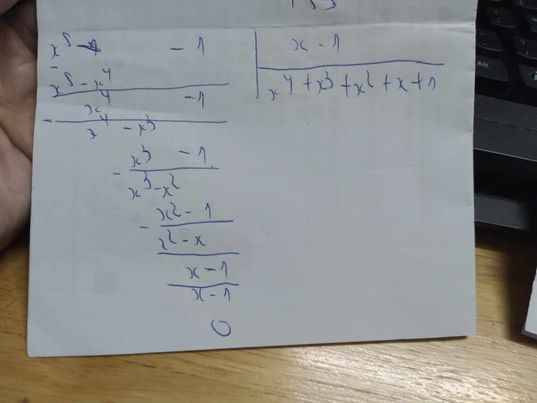 x⁵ - 1 | x - 1
- x⁵ - x⁴ | x⁴ + x³ + x² + x + 1
x⁴ - 1
- x⁴ - x³
x³ - 1
- x³ - x²
x² - 1
- x² - x
x - 1
x - 1
0